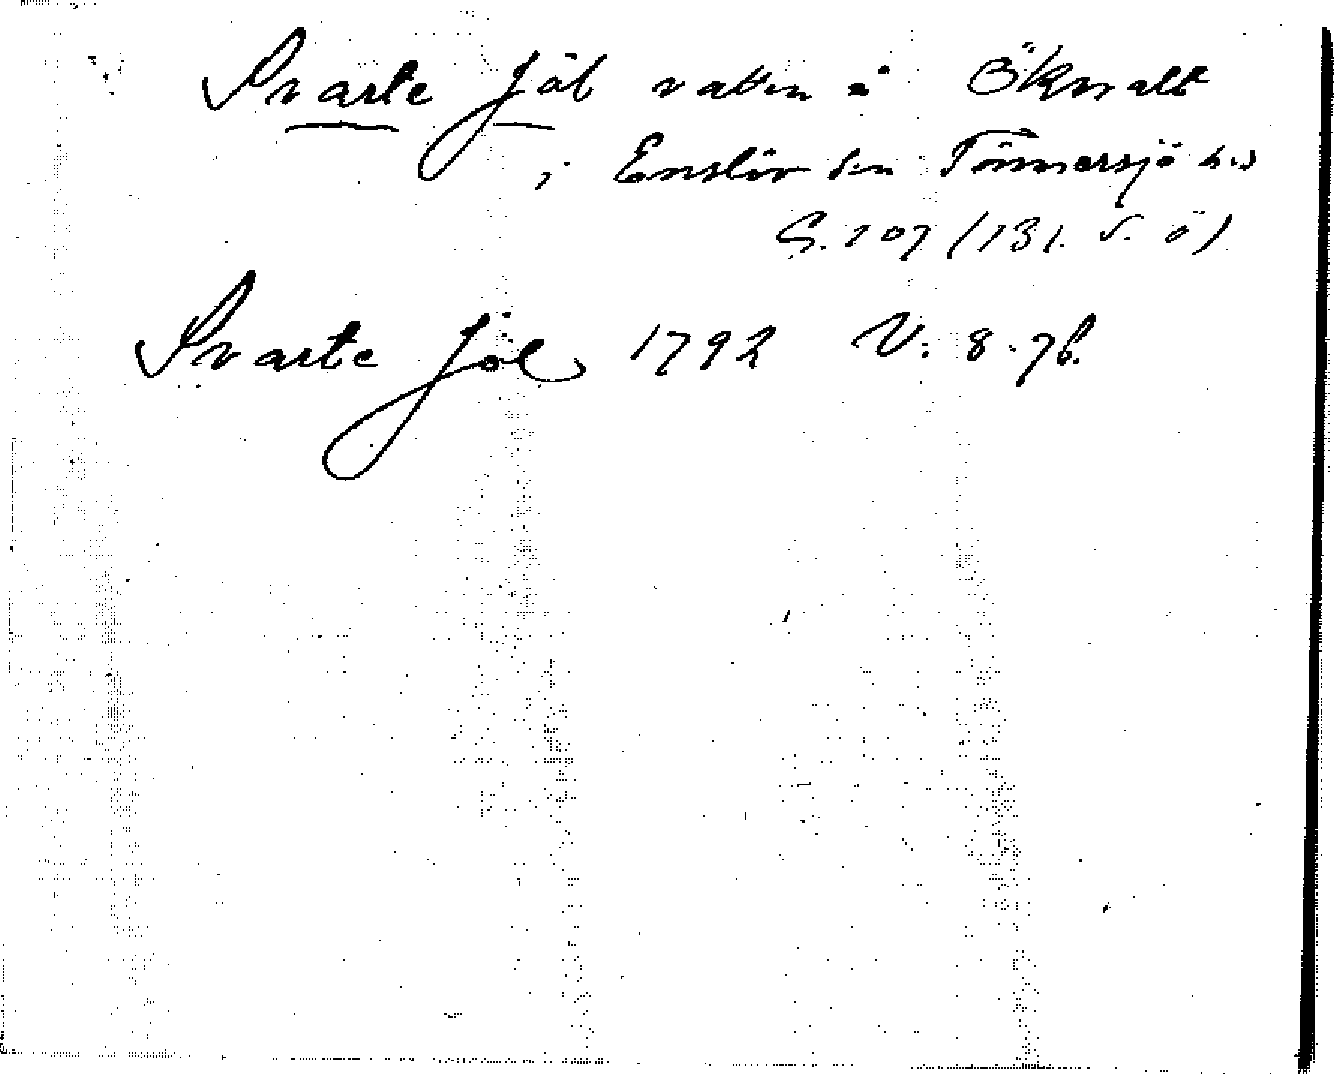 Svarte Jöl vatten i Öknalt
i Enslöv sn Tönnersjö hd
S. 107 (131. S. ö)
Svarte Jöl 1792 V: 8. 76.